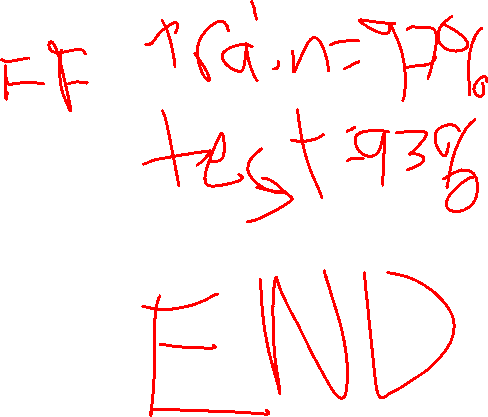 FF train=97%
test=93%
END